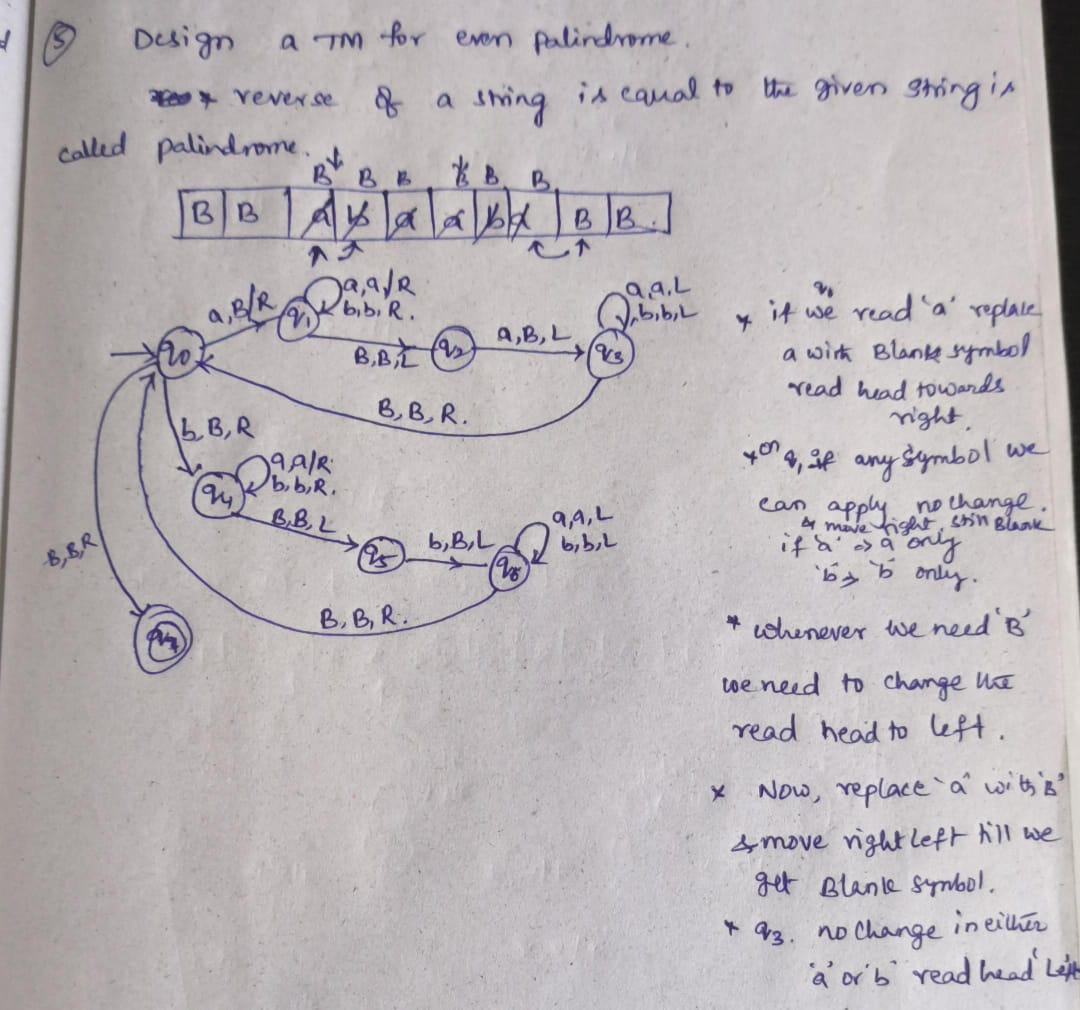 5 Design a TM for even palindrome.
* reverse of a string is equal to the given string is
called palindrome.
B B B B B B
B B a b a a b a B B .
a,B/R
q1
a,a/R
b,b,R.
B,B,L
q2
a,B,L
q3
a,a,L
b,b,L
q0
B,B,R.
b,B,R
q4
a,a/R.
b,b,R.
B,B,L
q5
b,B,L
q6
a,a,L
b,b,L
B,B,R
B,B,R.
* if we read 'a' replace
a with Blank symbol
read head towards
right.
* on q1 if any symbol we
can apply no change.
& move right, still Blank
if 'a' => a only
'b' => 'b only.
* whenever we need 'B'
we need to change the
read head to left.
* Now, replace 'a' with 'B'
& move right left till we
get Blank symbol.
* q3. no change in either
'a' or 'b' read head 'Left